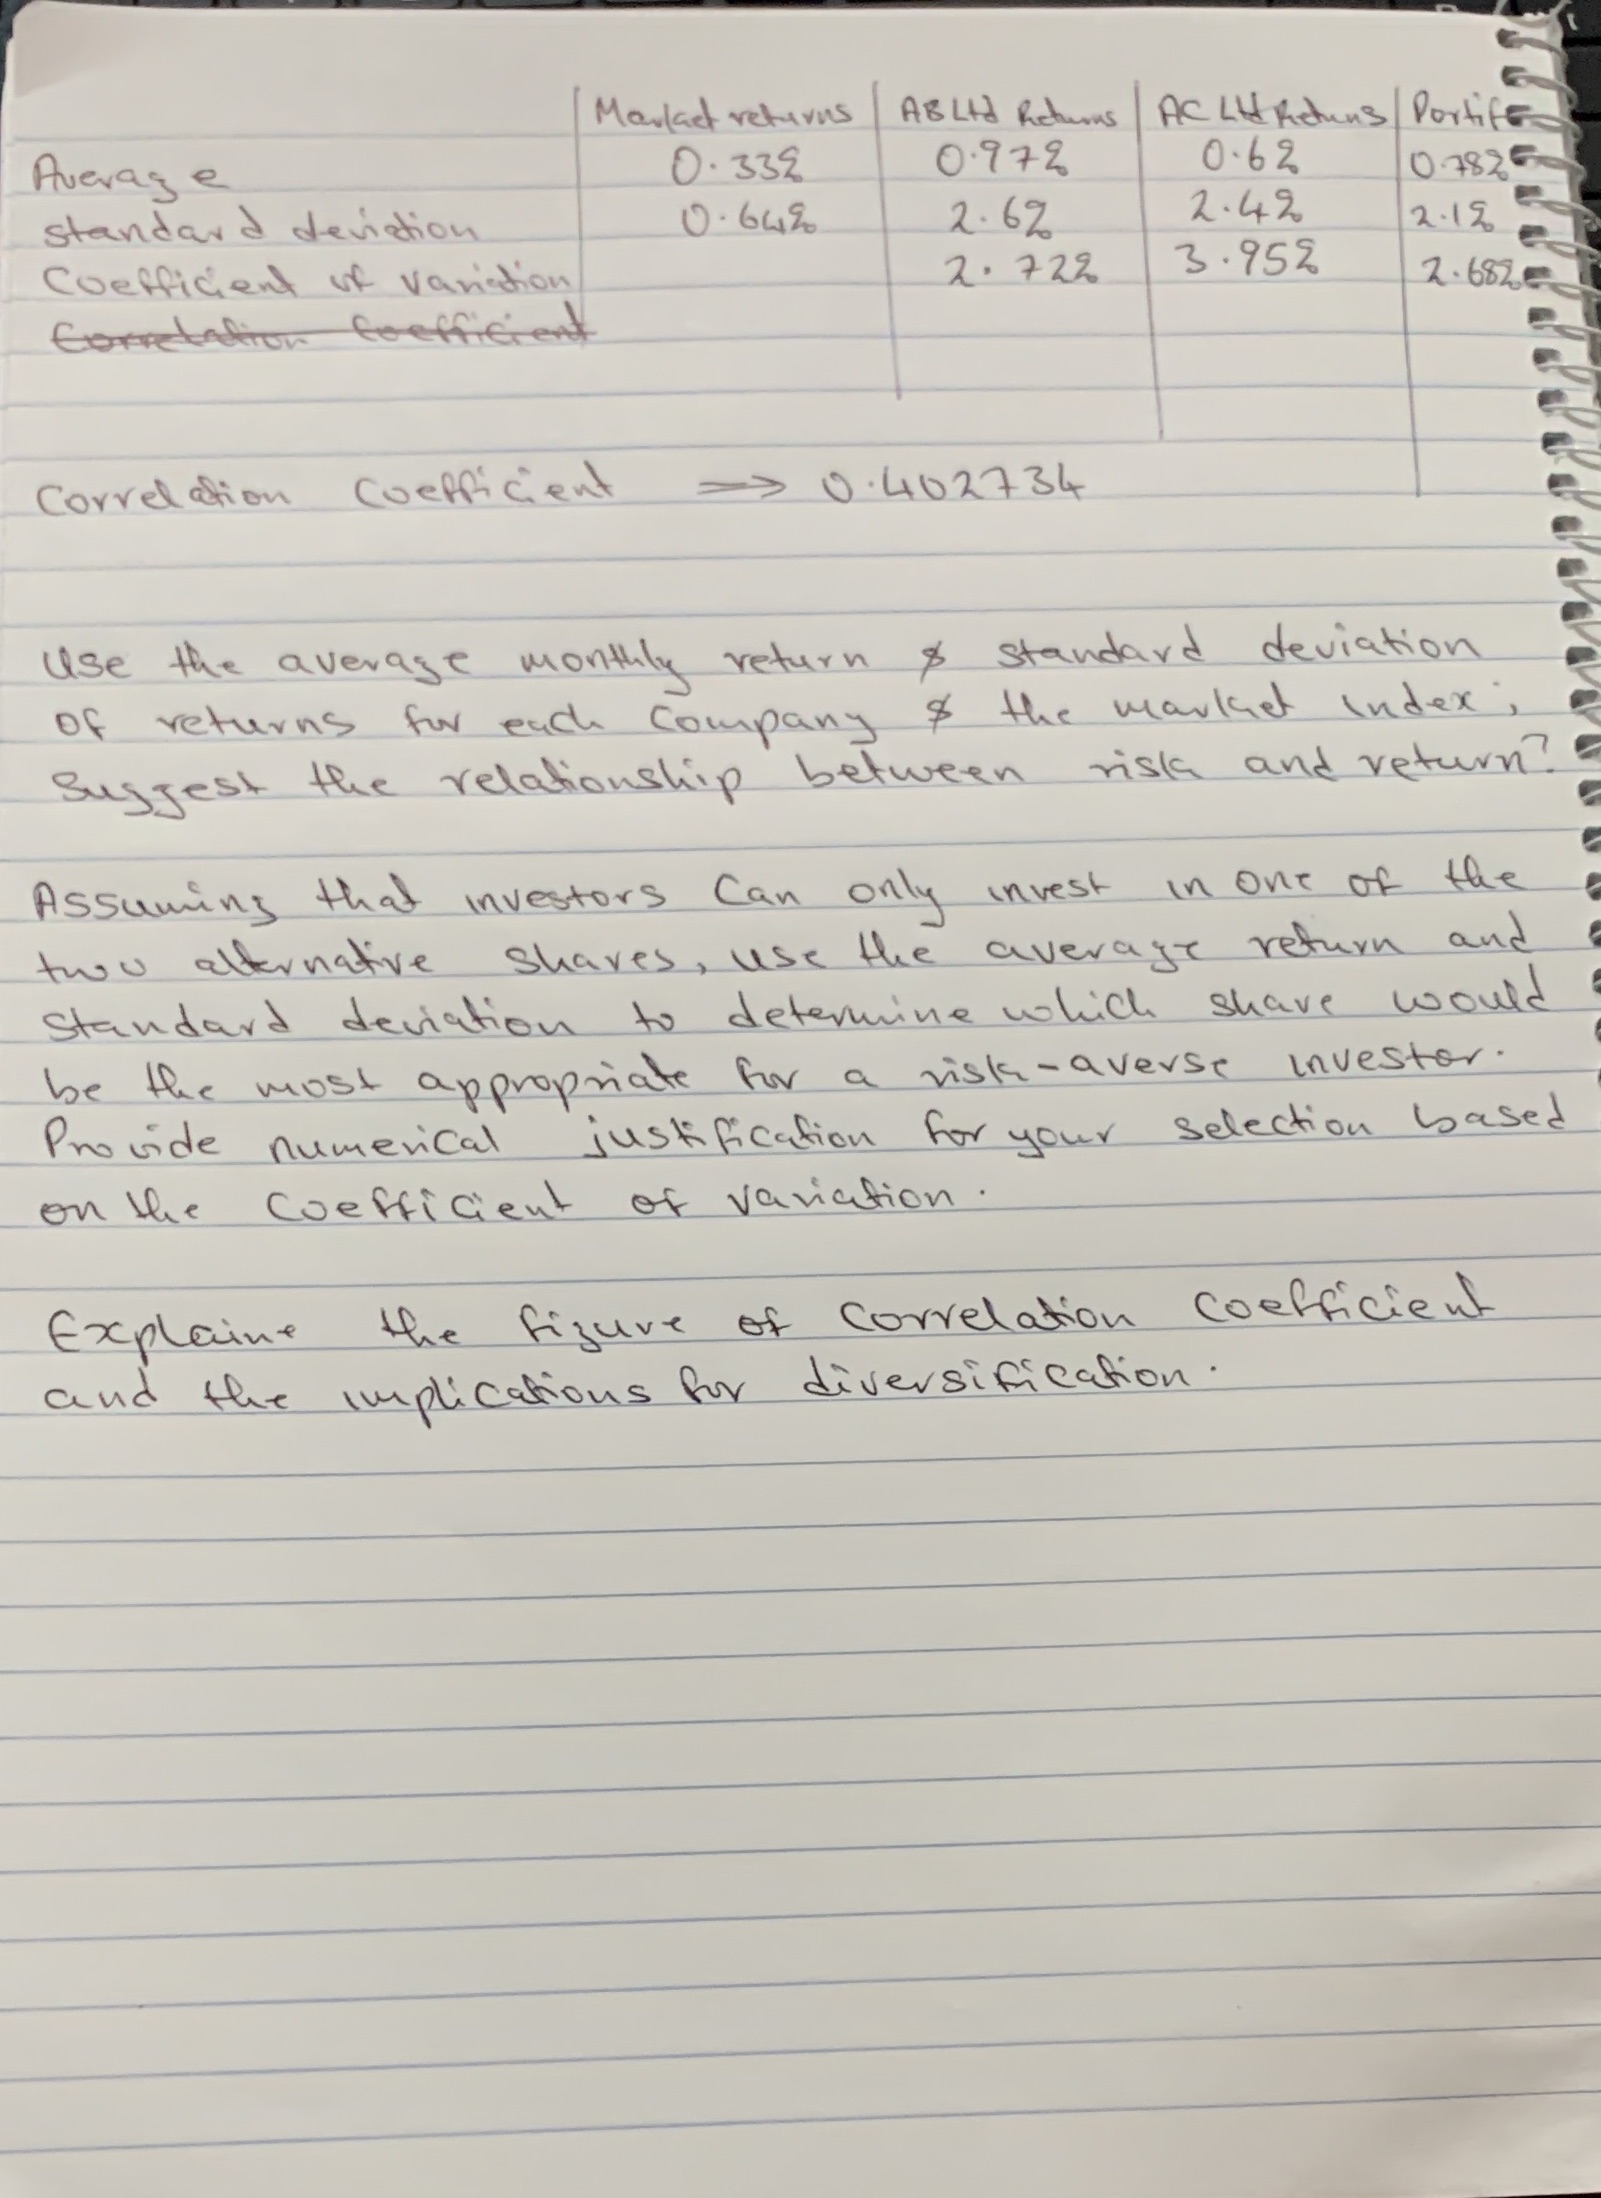 Market returns AB Ltd Returns AC Ltd Returns
Average 0.33% 0.97% 0.6% 0.78%
standard deviation 0.64% 2.6% 2.4% 2.1%
Coefficient of variation 2.72% 3.95% 2.68%
Correlation Coefficient
Correlation Coefficient => 0.402734
Use the average monthly return & standard deviation
of returns for each Company & the market index;
Suggest the relationship between risk and return?
Assuming that investors Can only invest in one of the
two alternative shares, use the average return and
Standard deviation to determine which share would
be the most appropriate for a risk-averse investor.
Provide numerical justification for your selection based
on the Coefficient of variation.
Explaine the figure of Correlation Coefficient
and the implications for diversification.